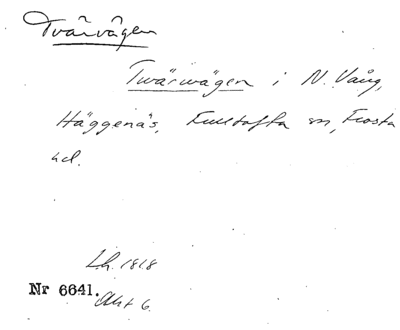 Tvärvägen
Twärwägen i N. Vång,
Häggenäs, Fulltofta sn, Frosta
hd.
Lh. 1818
Nr 6641. Akt 6.